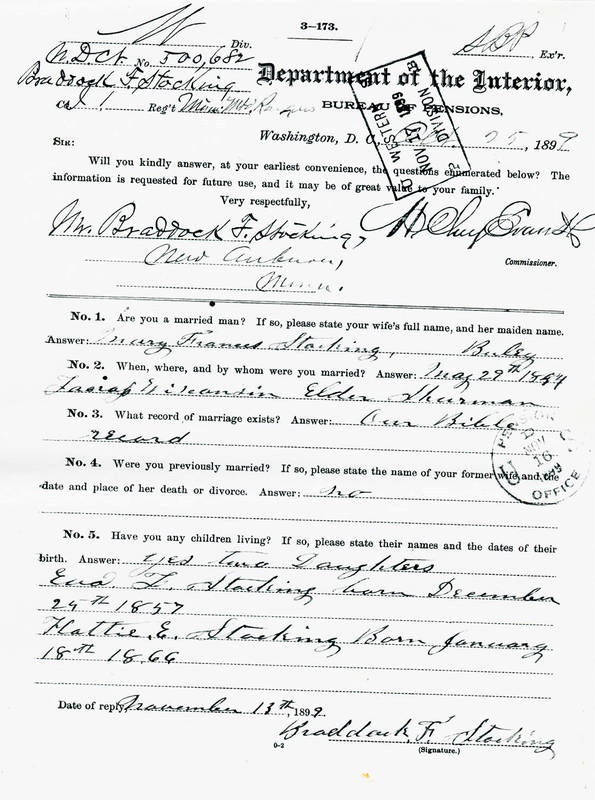 W
3—173.
Div.
No. 500,682
Ex'r.
Braddock F. Stocking
Department of the Interior,
Co. I, Reg't Minn. Mt'd Rangers
BUREAU OF PENSIONS,
Washington, D. C., 25, 1899
WESTERN DIVISION
NOV 17 1899
SIR:
Will you kindly answer, at your earliest convenience, the questions enumerated below? The
information is requested for future use, and it may be of great value to your family.
Very respectfully,
Mr. Braddock F. Stocking,
H Clay Evans
New Auburn,
Commissioner.
Minn.
No. 1. Are you a married man? If so, please state your wife's full name, and her maiden name.
Answer: Mary Frances Stocking,
No. 2. When, where, and by whom were you married? Answer: May 29th 1854
Wisconsin Elder Shurman
No. 3. What record of marriage exists? Answer: Our Bible
record
PENSION OFFICE
NOV 16 1899
No. 4. Were you previously married? If so, please state the name of your former wife and the
date and place of her death or divorce. Answer: no
No. 5. Have you any children living? If so, please state their names and the dates of their
birth. Answer: yes two Daughters
Eva L. Stocking born December
29th 1857
Hattie. E. Stocking Born January
18th 1866
Date of reply, November 13th, 1899.
Braddock F. Stocking
0-2
(Signature.)